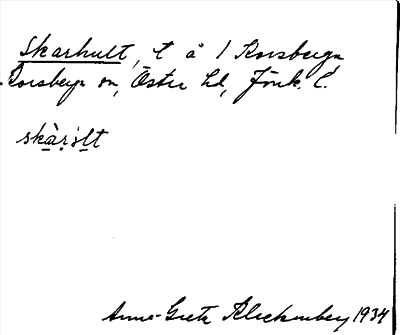 Skarhult, t å 1 Korsberga
Korsberga sn, Östra hd, Jönk. l.
skàr̥ùlt
Anna-Greta Bleckenberg 1934